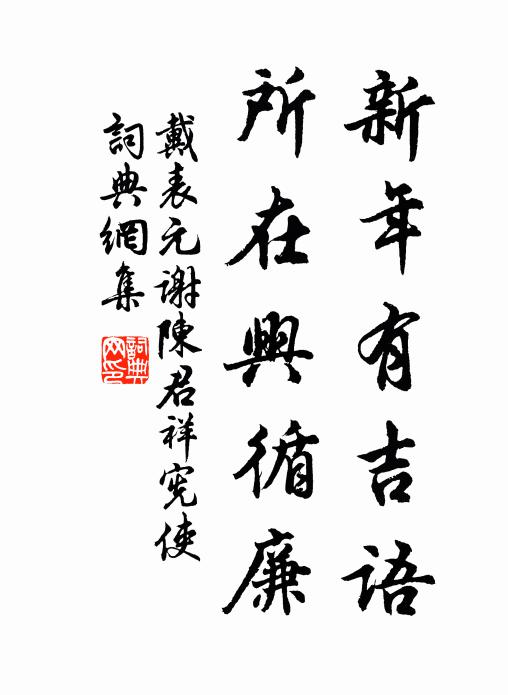 新年有吉语
所在興循廉
戴表元谢陳君祥宪使
詞典網集
詞典网印